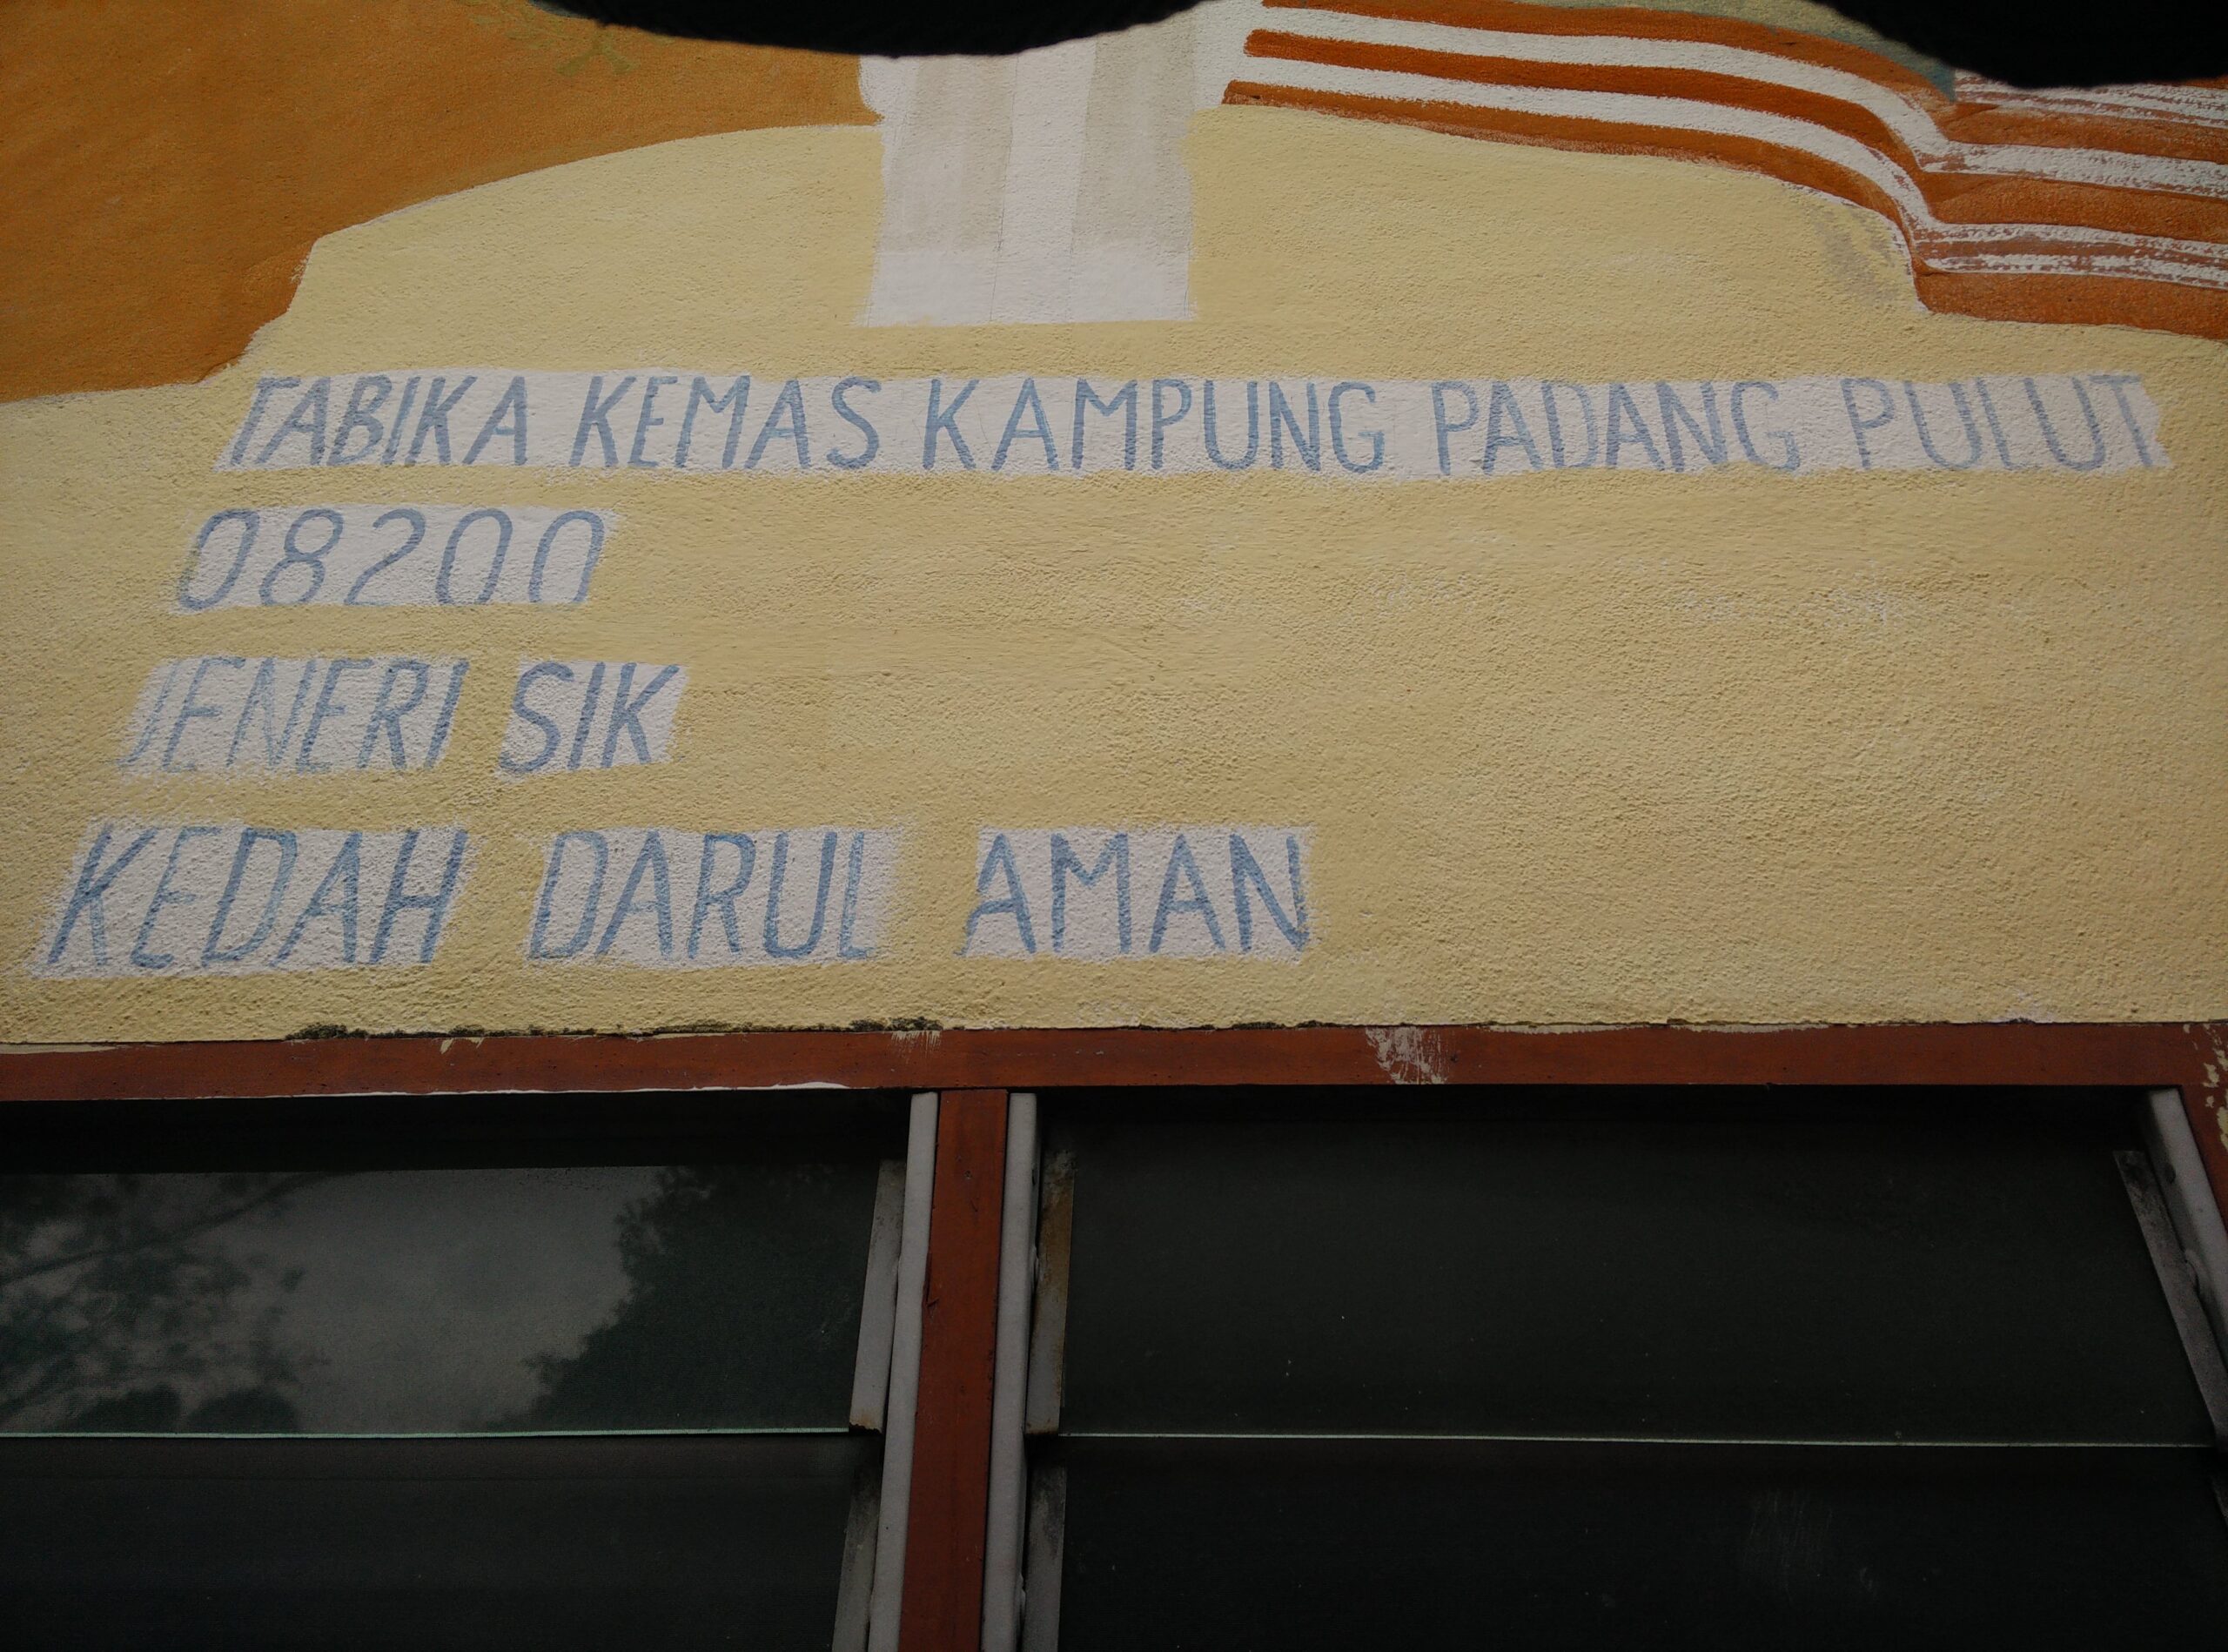 TABIKA KEMAS KAMPUNG PADANG PULUT
08200
JENERI SIK
KEDAH DARUL AMAN